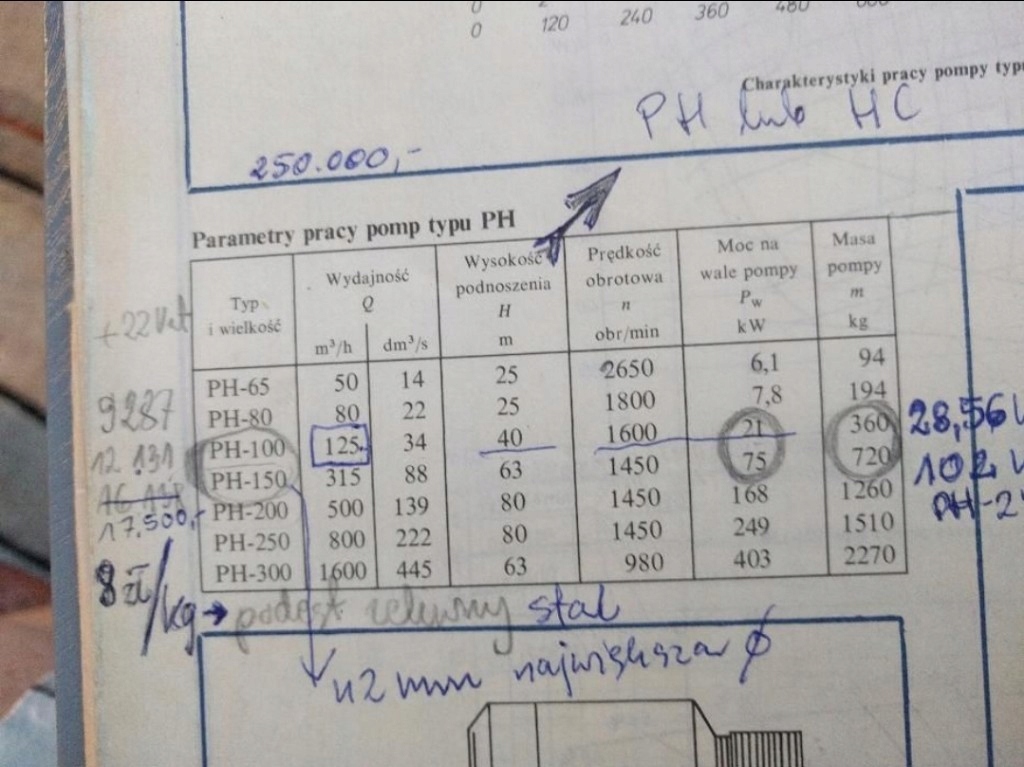 0
0 120 240 360 480
Charakterystyki pracy pompy typu
PH lub HC
250.000,-
Parametry pracy pomp typu PH
Typ i wielkość
Wydajność Q
m³/h dm³/s
Wysokość podnoszenia H m
Prędkość obrotowa n obr/min
Moc na wale pompy Pw kW
Masa pompy m kg
+22Vat
PH-65 50 14 25 2650 6,1 94
9287 PH-80 80 22 25 1800 7,8 194
PH-100 125 34 40 1600 21 360 28,56
12 131 PH-150 315 88 63 1450 75 720 102
17.500,- PH-200 500 139 80 1450 168 1260 PH-2
PH-250 800 222 80 1450 249 1510
8 zł/kg PH-300 1600 445 63 980 403 2270
podest stal
największa ϕ